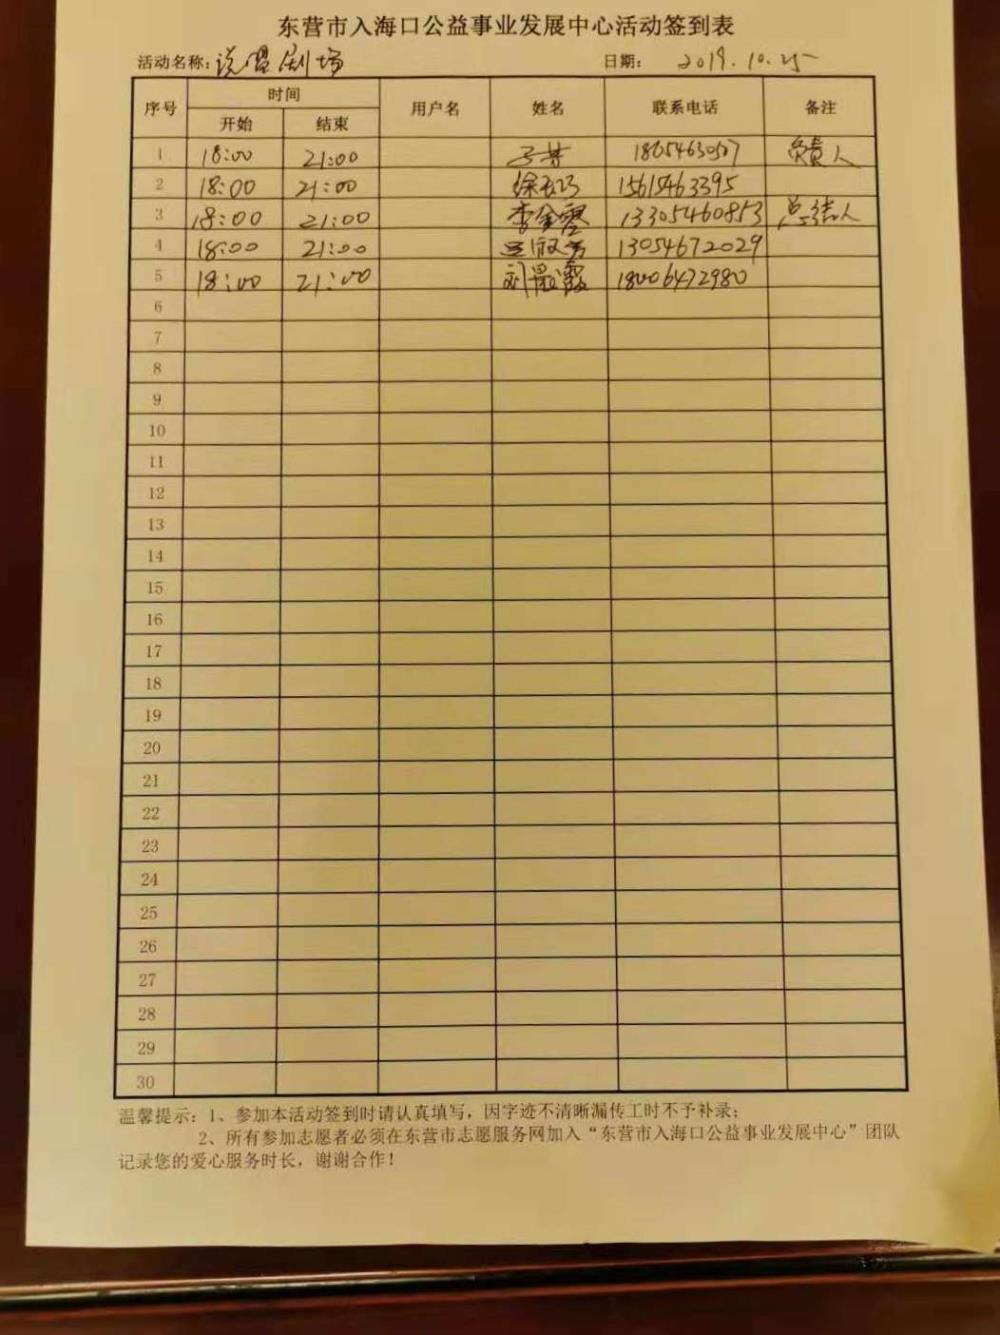 东营市入海口公益事业发展中心活动签到表
活动名称: 说唱剧场 日期: 2019.10.25
序号 时间 用户名 姓名 联系电话 备注
开始 结束
1 18:00 21:00 负责人
2 18:00 21:00 15615463395
3 18:00 21:00 李金霞 13305460853 总结人
4 18:00 21:00 13054672029
5 18:00 21:00 18006472980
6
7
8
9
10
11
12
13
14
15
16
17
18
19
20
21
22
23
24
25
26
27
28
29
30
温馨提示: 1、参加本活动签到时请认真填写，因字迹不清晰漏传工时不予补录;
2、所有参加志愿者必须在东营市志愿服务网加入“东营市入海口公益事业发展中心”团队
记录您的爱心服务时长，谢谢合作!